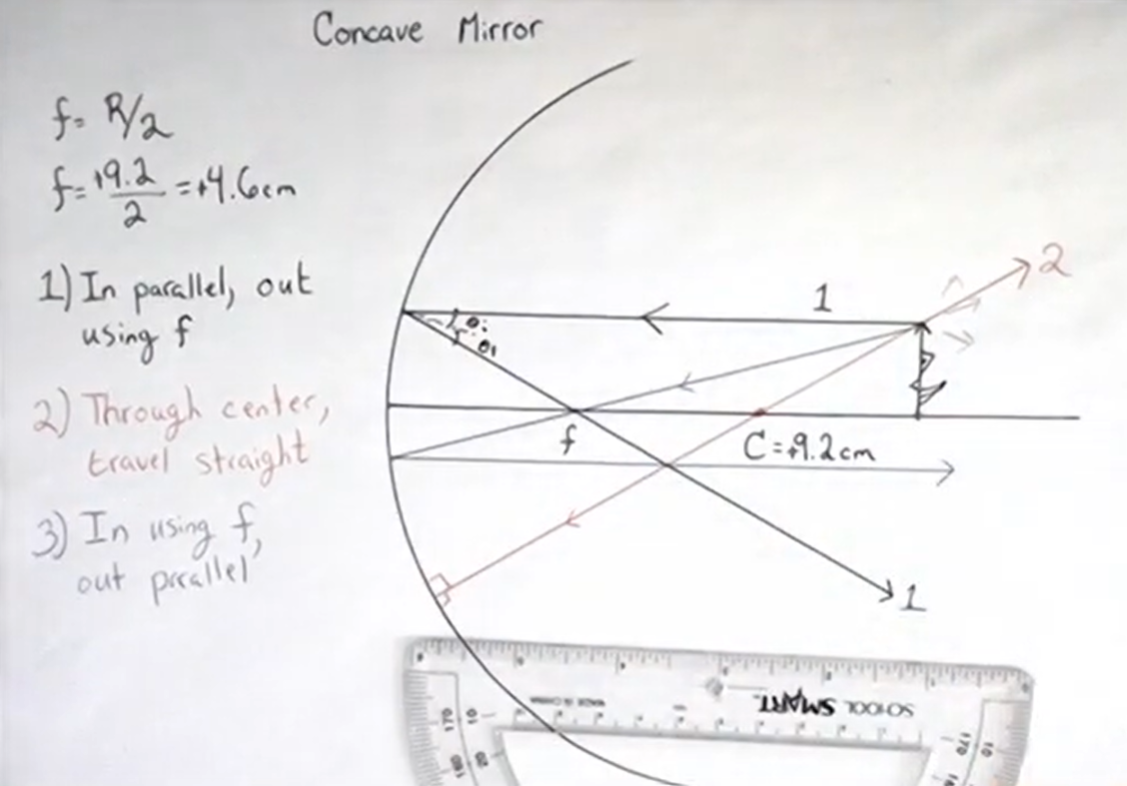 Concave Mirror
f= R/2
f= +9.2/2 = +4.6cm
1) In parallel, out
using f
2) Through center,
travel straight
3) In using f,
out prallel
1
2
θi
θ1
f
C=+9.2cm
1
SCHOOL SMART
MADE IN CHINA
170
10
170
10